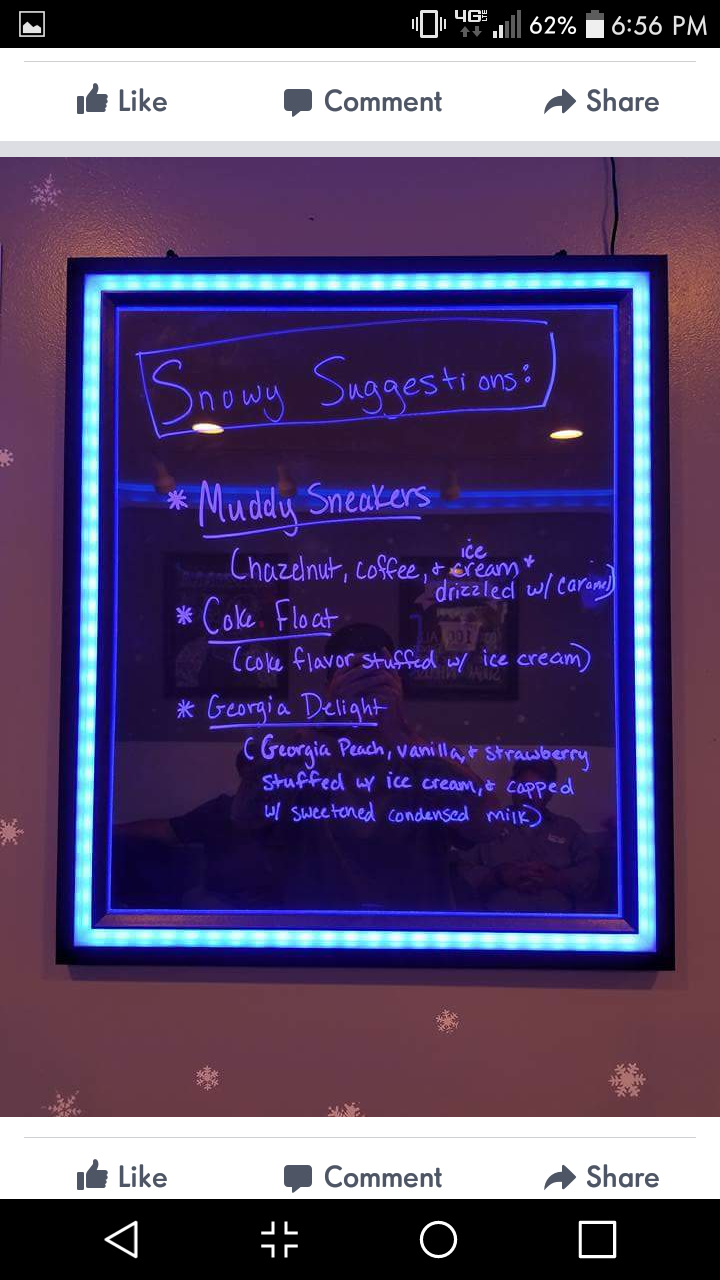 4G LTE 62% 6:56 PM
Like Comment Share
Snowy Suggestions:
* Muddy Sneakers
(hazelnut, coffee, & ice cream *
drizzled w/ caramel)
* Coke Float
(coke flavor stuffed w/ ice cream)
* Georgia Delight
(Georgia Peach, vanilla, & strawberry
stuffed w/ ice cream, & capped
w/ sweetened condensed milk)
Like Comment Share